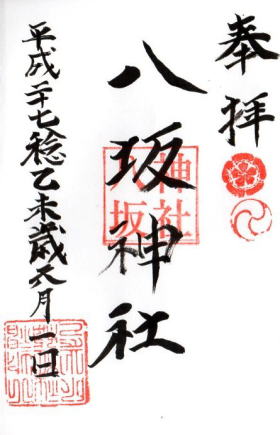 奉拝
八坂神社
神社
八坂
平成二十七稔乙未歳六月一日